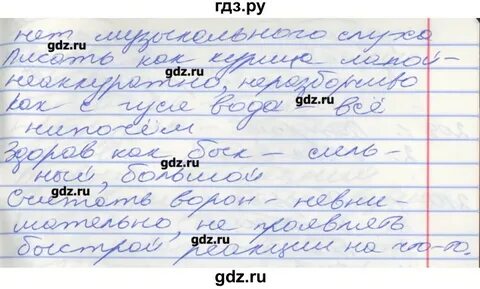 гдз.ру
нет музыкального слуха
Писать как курица лапой-
неаккуратно, неразборчиво
как с гуся вода - всё
нипочём
Здоров как бык - силь-
ный, большой
Считать ворон - невни-
мательно, не проявлять
быстрой реакции на что-то.
gdz.ru
gdz.ru
gdz.ru
gdz.ru
gdz.ru
gdz.ru
gdz.ru
gdz.ru